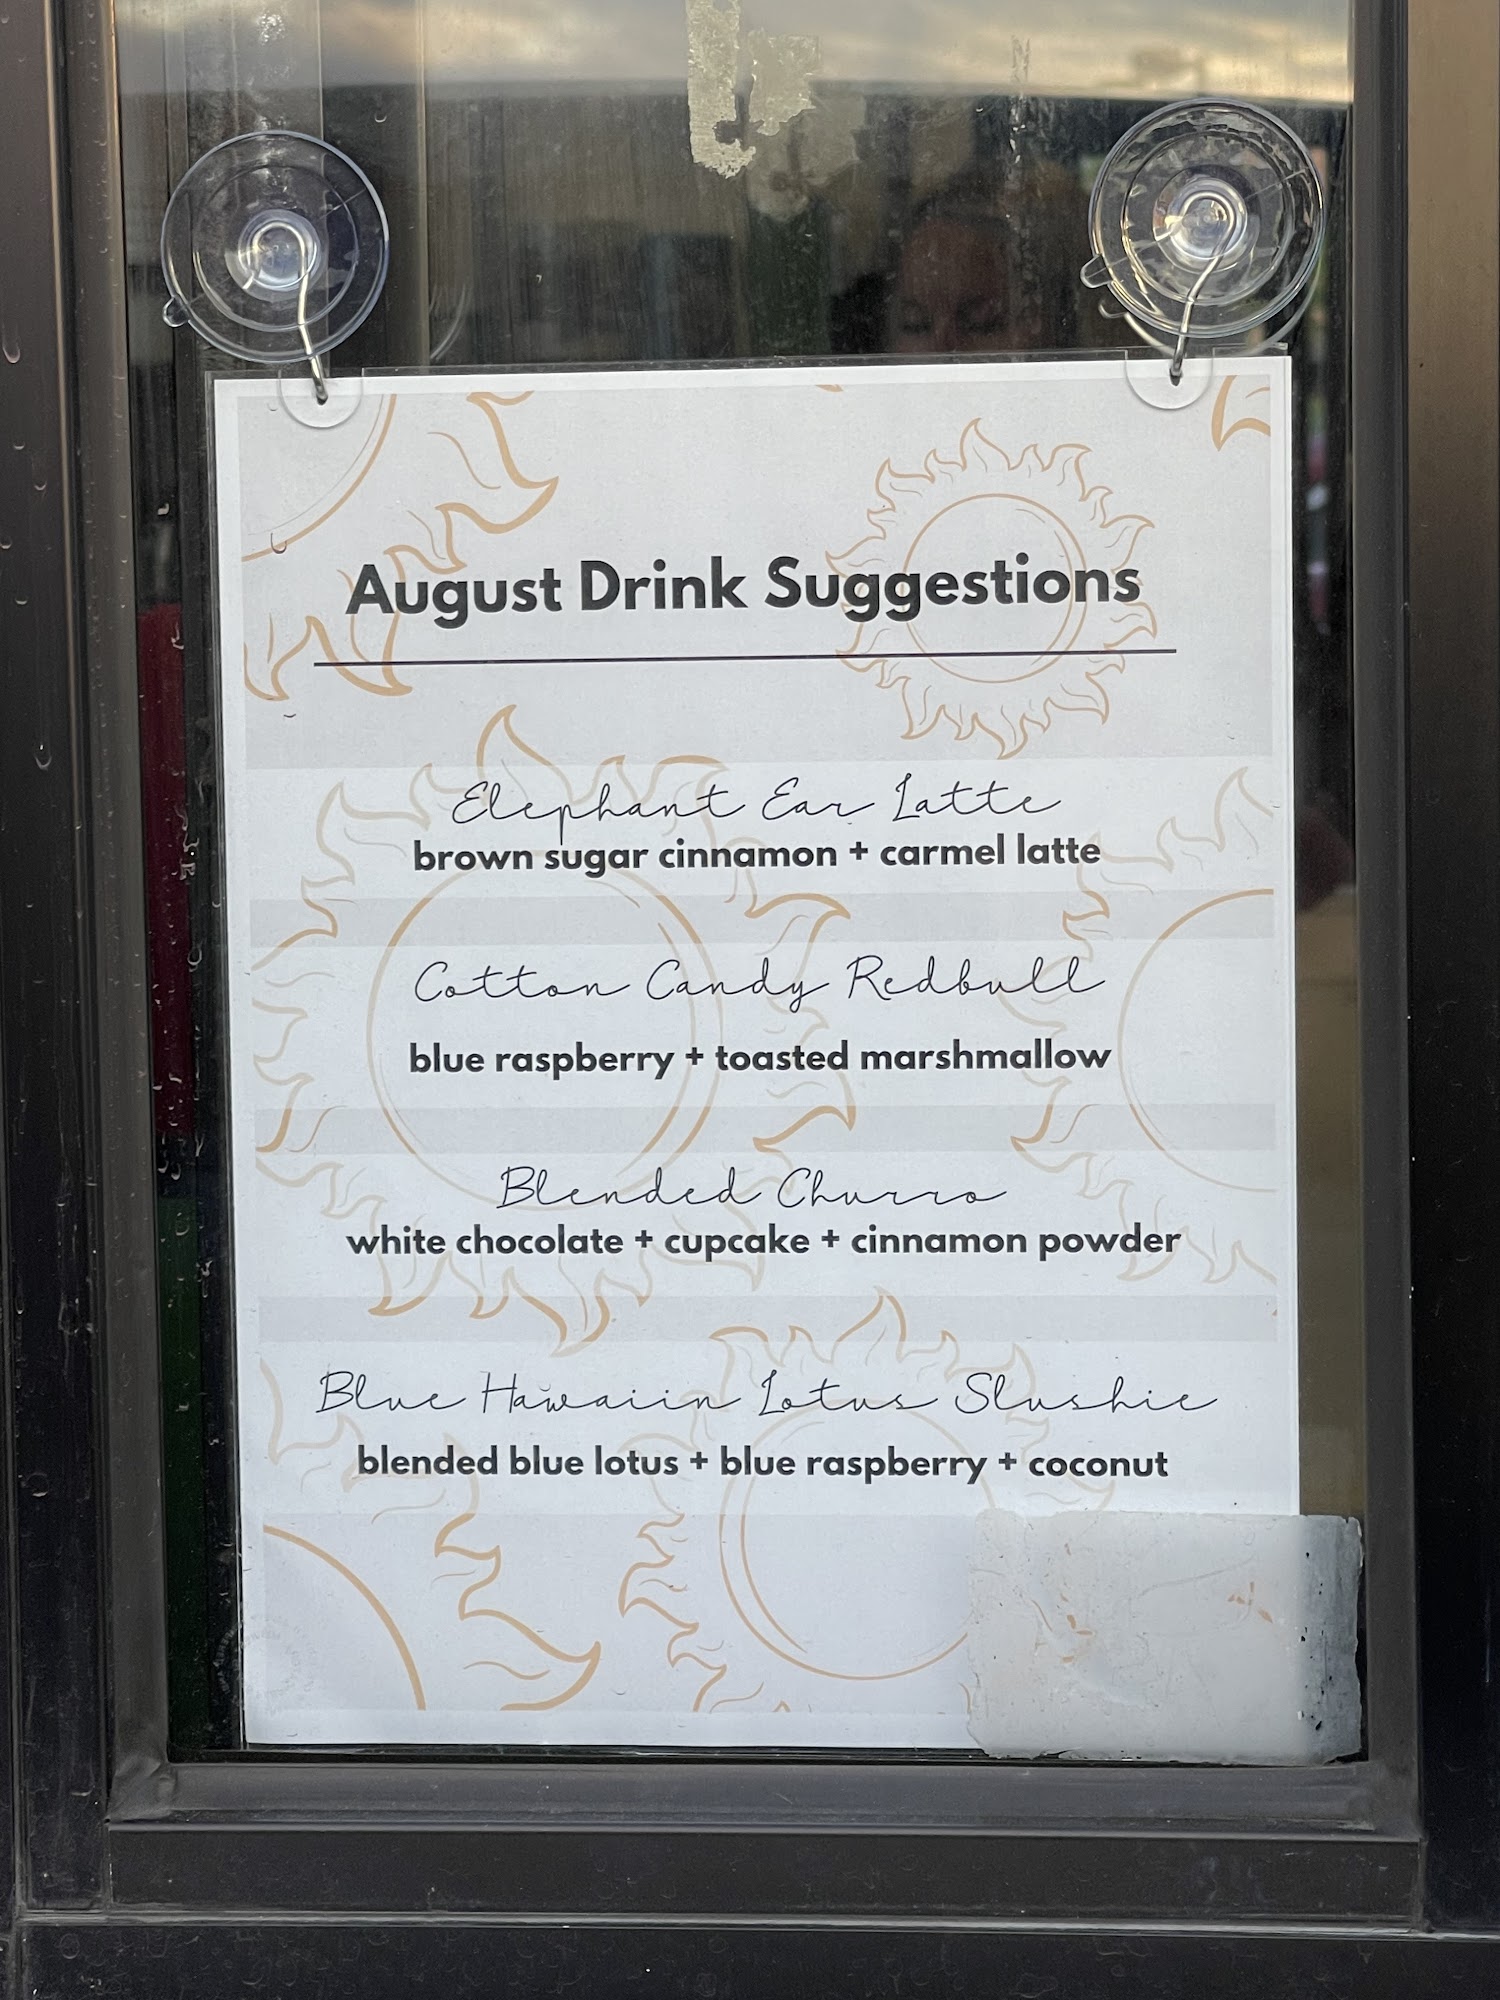 August Drink Suggestions
Elephant Ear Latte
brown sugar cinnamon + carmel latte
Cotton Candy Redbull
blue raspberry + toasted marshmallow
Blended Churro
white chocolate + cupcake + cinnamon powder
Blue Hawaiin Lotus Slushie
blended blue lotus + blue raspberry + coconut